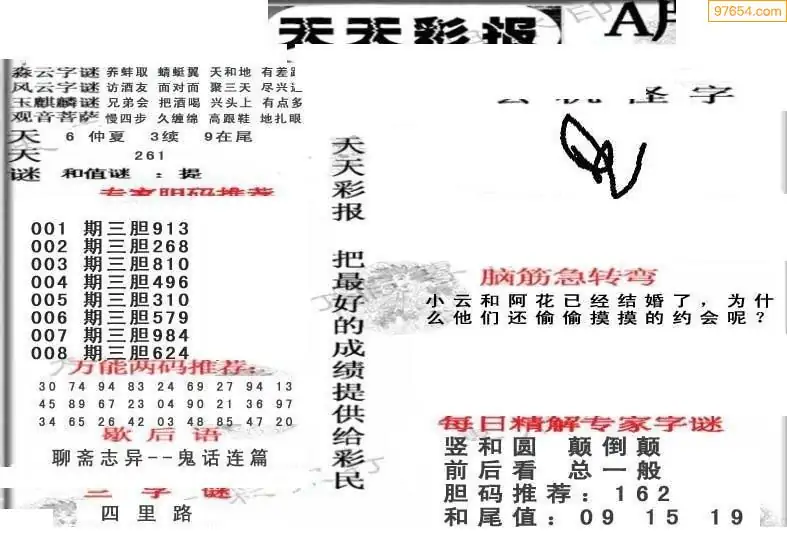 天天彩报
97654.com
森云字谜 养蚌取 蜻蜓翼 天和地 有差距
风云字谜 访酒友 面对面 聚三天 尽兴
玉麒麟谜 兄弟会 把酒喝 兴头上 有点多
观音菩萨 慢四步 久缠绵 高跟鞋 地扎眼
天 6 仲夏 3续 9在尾
天 261
谜 和值谜 : 提
专家胆码推荐
001 期三胆913
002 期三胆268
003 期三胆810
004 期三胆496
005 期三胆310
006 期三胆579
007 期三胆984
008 期三胆624
万能两码推荐:
30 74 94 83 24 69 27 94 13
45 89 67 23 04 90 21 36 97
34 65 26 42 03 48 85 47 20
歇后语
聊斋志异--鬼话连篇
三字谜
四里路
天天彩报 把最好的成绩提供给彩民
字
脑筋急转弯
小云和阿花已经结婚了，为什
么他们还偷偷摸摸的约会呢？
每日精解专家字谜
竖和圆 颠倒颠
前后看 总一般
胆码推荐: 162
和尾值: 09 15 19